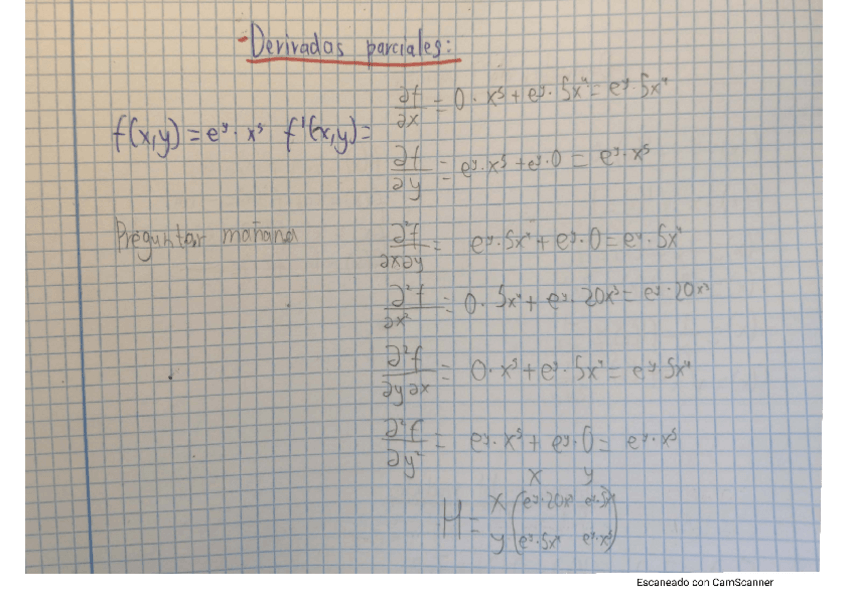 - Derivadas parciales:
f(x,y) = e^y · x^5 f'(x,y) =
∂f/∂x = 0 · x^5 + e^y · 5x^4 = e^y · 5x^4
∂f/∂y = e^y · x^5 + e^y · 0 = e^y · x^5
Preguntar mañana
∂²f/∂x∂y = e^y · 5x^4 + e^y · 0 = e^y · 5x^4
∂²f/∂x² = 0 · 5x^4 + e^y · 20x^3 = e^y · 20x^3
∂²f/∂y∂x = 0 · x^5 + e^y · 5x^4 = e^y · 5x^4
∂²f/∂y² = e^y · x^5 + e^y · 0 = e^y · x^5
x y
H = x (e^y · 20x^3 e^y · 5x^4
y e^y · 5x^4 e^y · x^5)
Escaneado con CamScanner